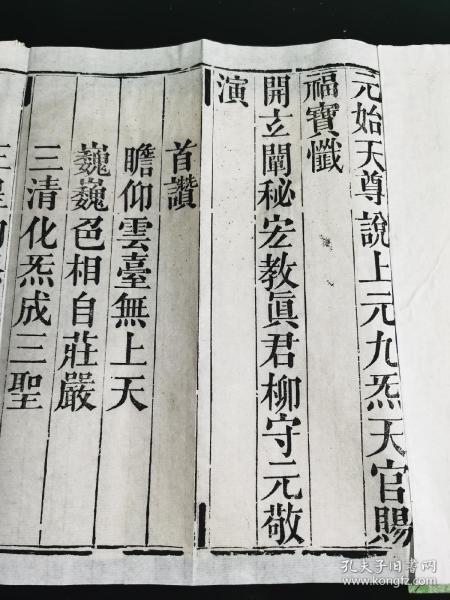 元始天尊說上元九炁天官賜
福寶懺
開玄闡秘宏教眞君柳守元敬
演
首讚
瞻仰雲臺無上天
巍巍色相自莊嚴
三清化炁成三聖
孔夫子旧书网
www.kongfz.com